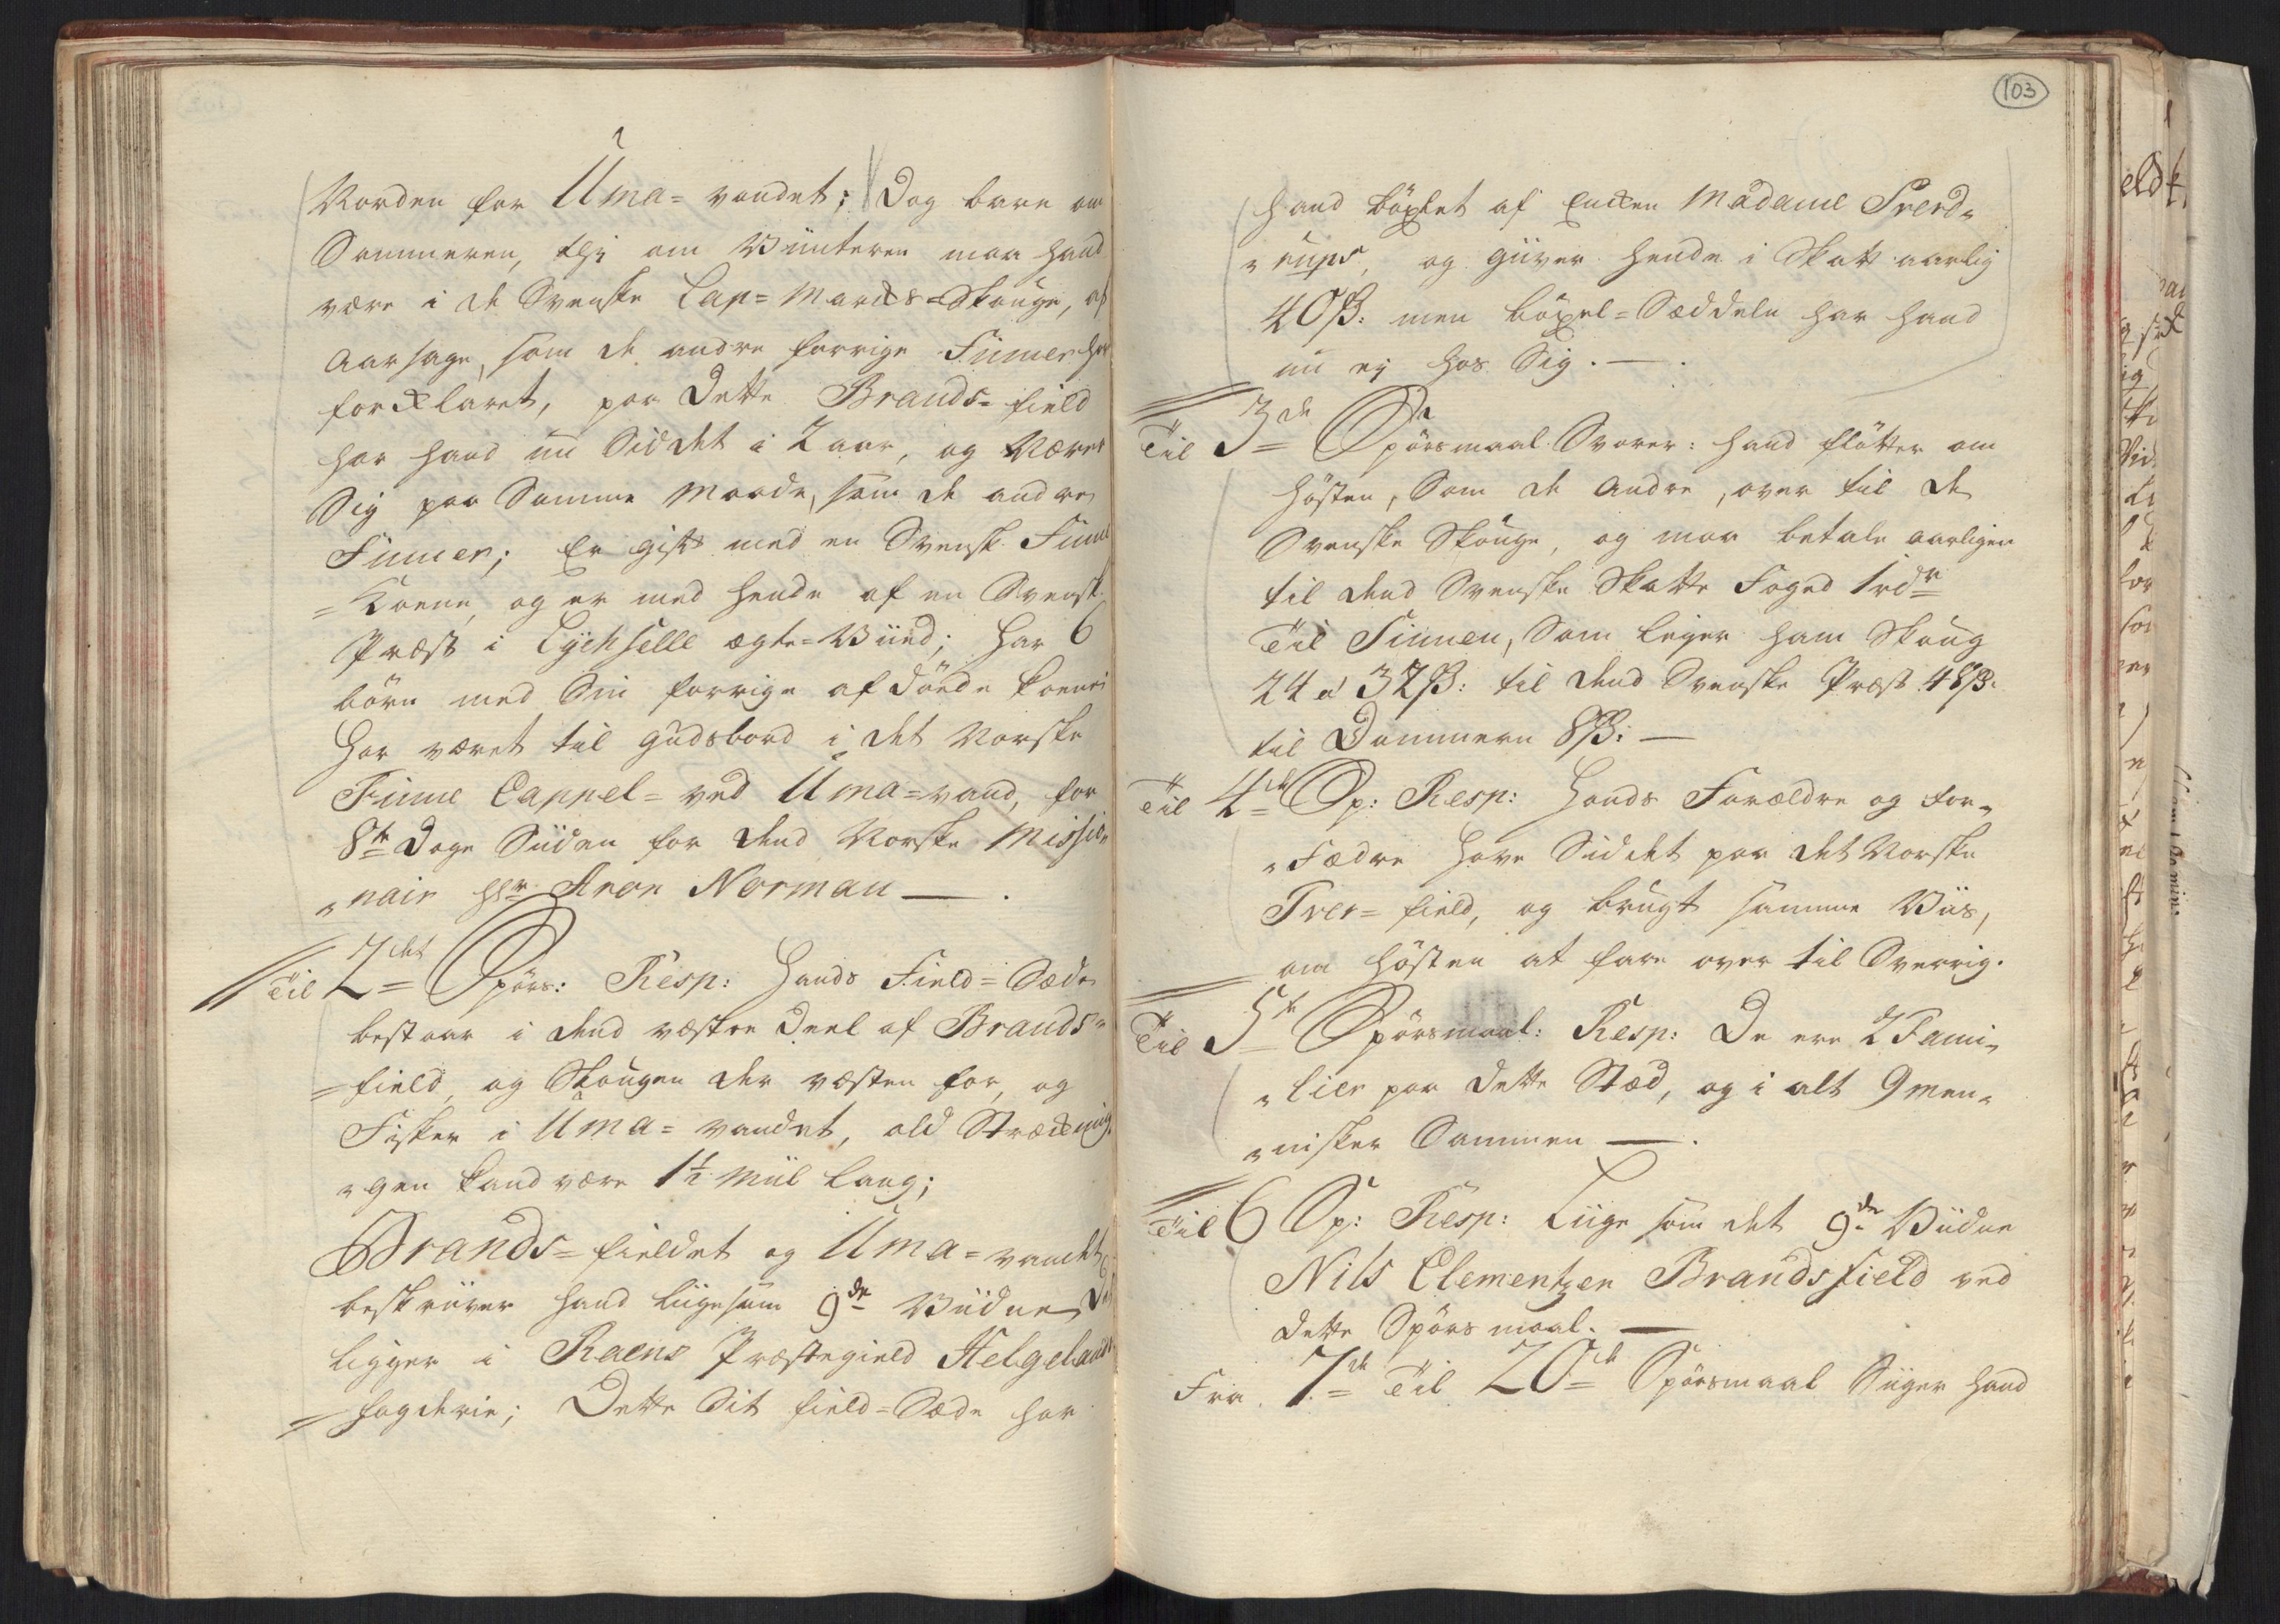 Norden for Uma= vandet; Dog bare om
Sommeren, thj om Viinteren maa hand
være i de Svenske Lap= Marcks=Skouge, af
Aarsage, som de andre forrige Finner har
forcklaret, paa dette Brands= field
har hand nu Siddet i 2 aar, og Næret
Sig paa Samme Maade, som de andre
Finner; Er gift med en Svensk Finne
=Koene, og er med hende af en Svensk
Præst i Lÿchselle ægte=Viied; har 6
börn med Sin forrige afdöede koene
har været til gudsbord i det Norske
Finne Cappel= ved Uma=vand, for
8te Dage Siiden for dend Norske Missio„
„nair Hr Aron Norman — .
Til 2det Spörs: Resp: Hands Field=Sæde
bestaar i dend væstre Deel af Brands„
=field, og Skougen der væsten for, og
Fisker i Uma= vandet, all Stræckning„
„gen kand være 1½ Miil lang;
Brands=fieldet og Uma=vandet
beskriiver hand liigesom 9de Viidne
ligger i Raens Præstegield Helgelands
=fogderie; Dette Sit field=Sæde har
103
hand böxlet af Encken Madame Srerd„
„rups, og giiver hende i Skatt aarlig
40ß: men böxel=Sæddeln har hand
nu ej hos Sig. — .
Til 3de Spörsmaal Svarer: hand flötter om
hösten, Som de Andre, over til de
Svenske Skouge, og maa betale aarligen
til dend Svenske Skatte Foged 1rdr
Til Finnen, Som leijer ham Skoug
24 a 32ß: til dend Svenske Præst 48ß:
til Dommeren 8ß: —
Til 4de Sp: Resp: Hands Forældre og for„
„Fædre have Siddet paa det Norske
Tver= field, og brugt samme Viis,
om hösten at fare over til Sverrig.
Til 5te Spörsmaal: Resp: De ere 2 Fami„
„lier paa dette Stæd, og i alt 9 men„
„nisker Sammen — .
Til 6 Sp: Resp: Liige som det 9de Viidne
Nils Clementzen Brandsfield ved
dette Spörsmaal. —
Fra 7de Til 20de Spörsmaal Siiger hand